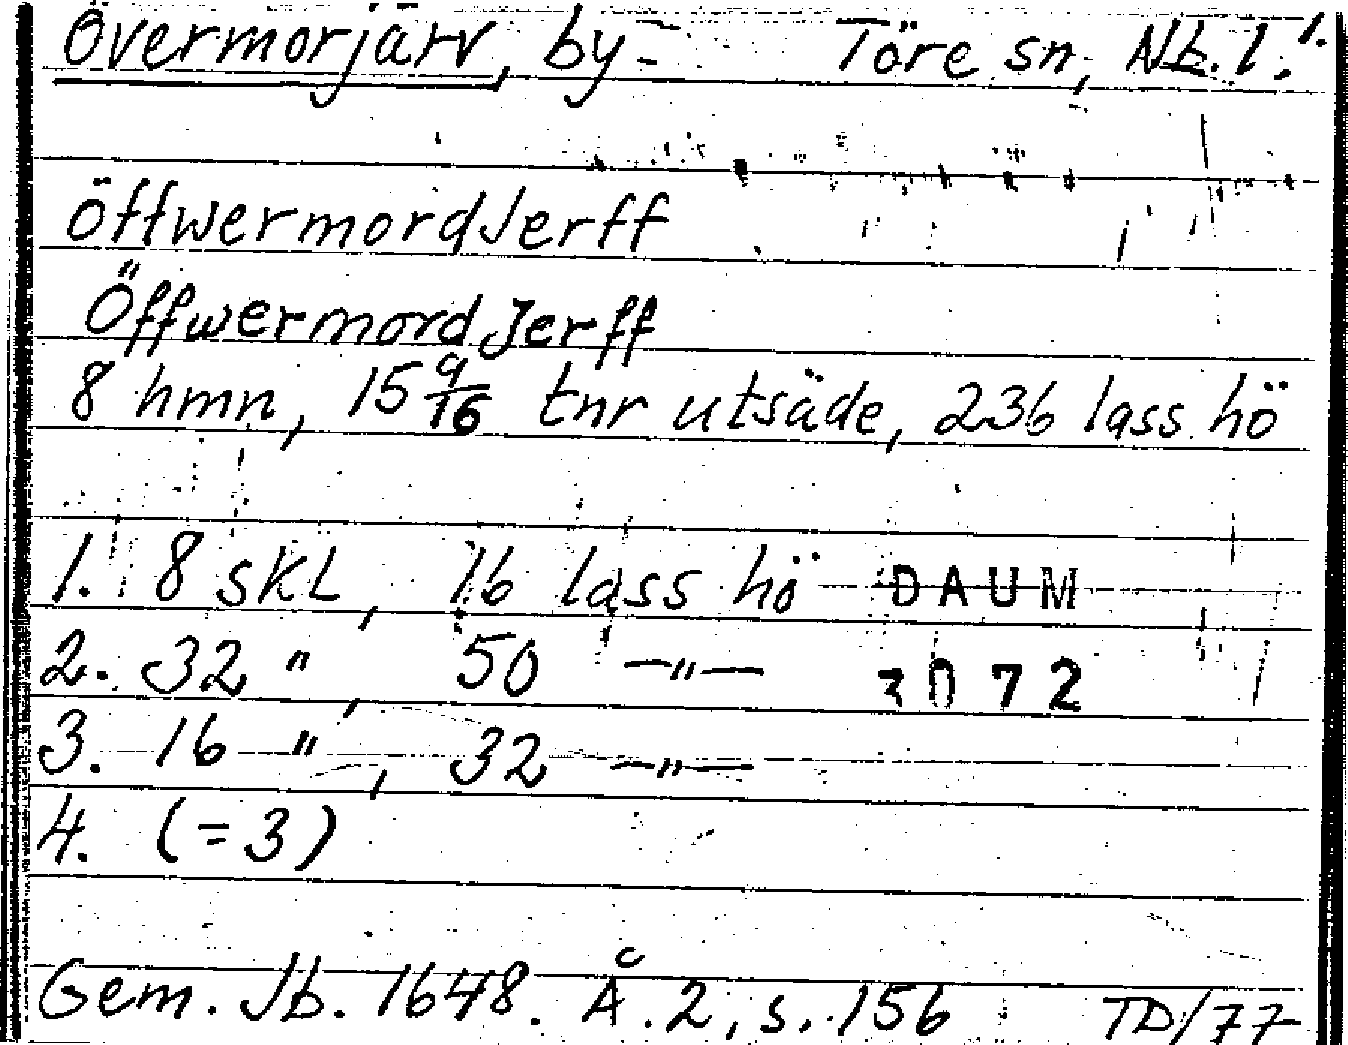 Övermorjärv, by Töre sn, Nb. l. 1.
ÖffwermordJerff
ÖffwermordJerff
8 hmn, 15 9/16 tnr utsäde, 236 lass hö
1. 8 skl, 16 lass hö DAUM
2. 32 ", 50 —"— 3072
3. 16 ", 32 —"—
4. (=3)
Gem. Jb. 1648. Å. 2, s. 156 TD/77